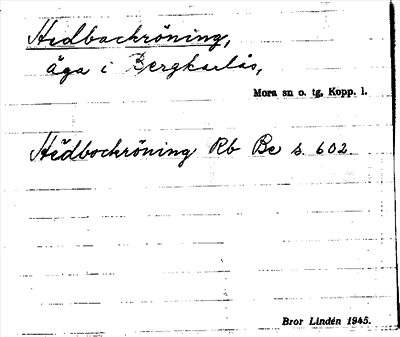 Hedbackröning,
äga i Bergkarlås,
Mora sn o. tg, Kopp. l.
Hedbockröning Rb Be s. 602.
Bror Lindén 1945.